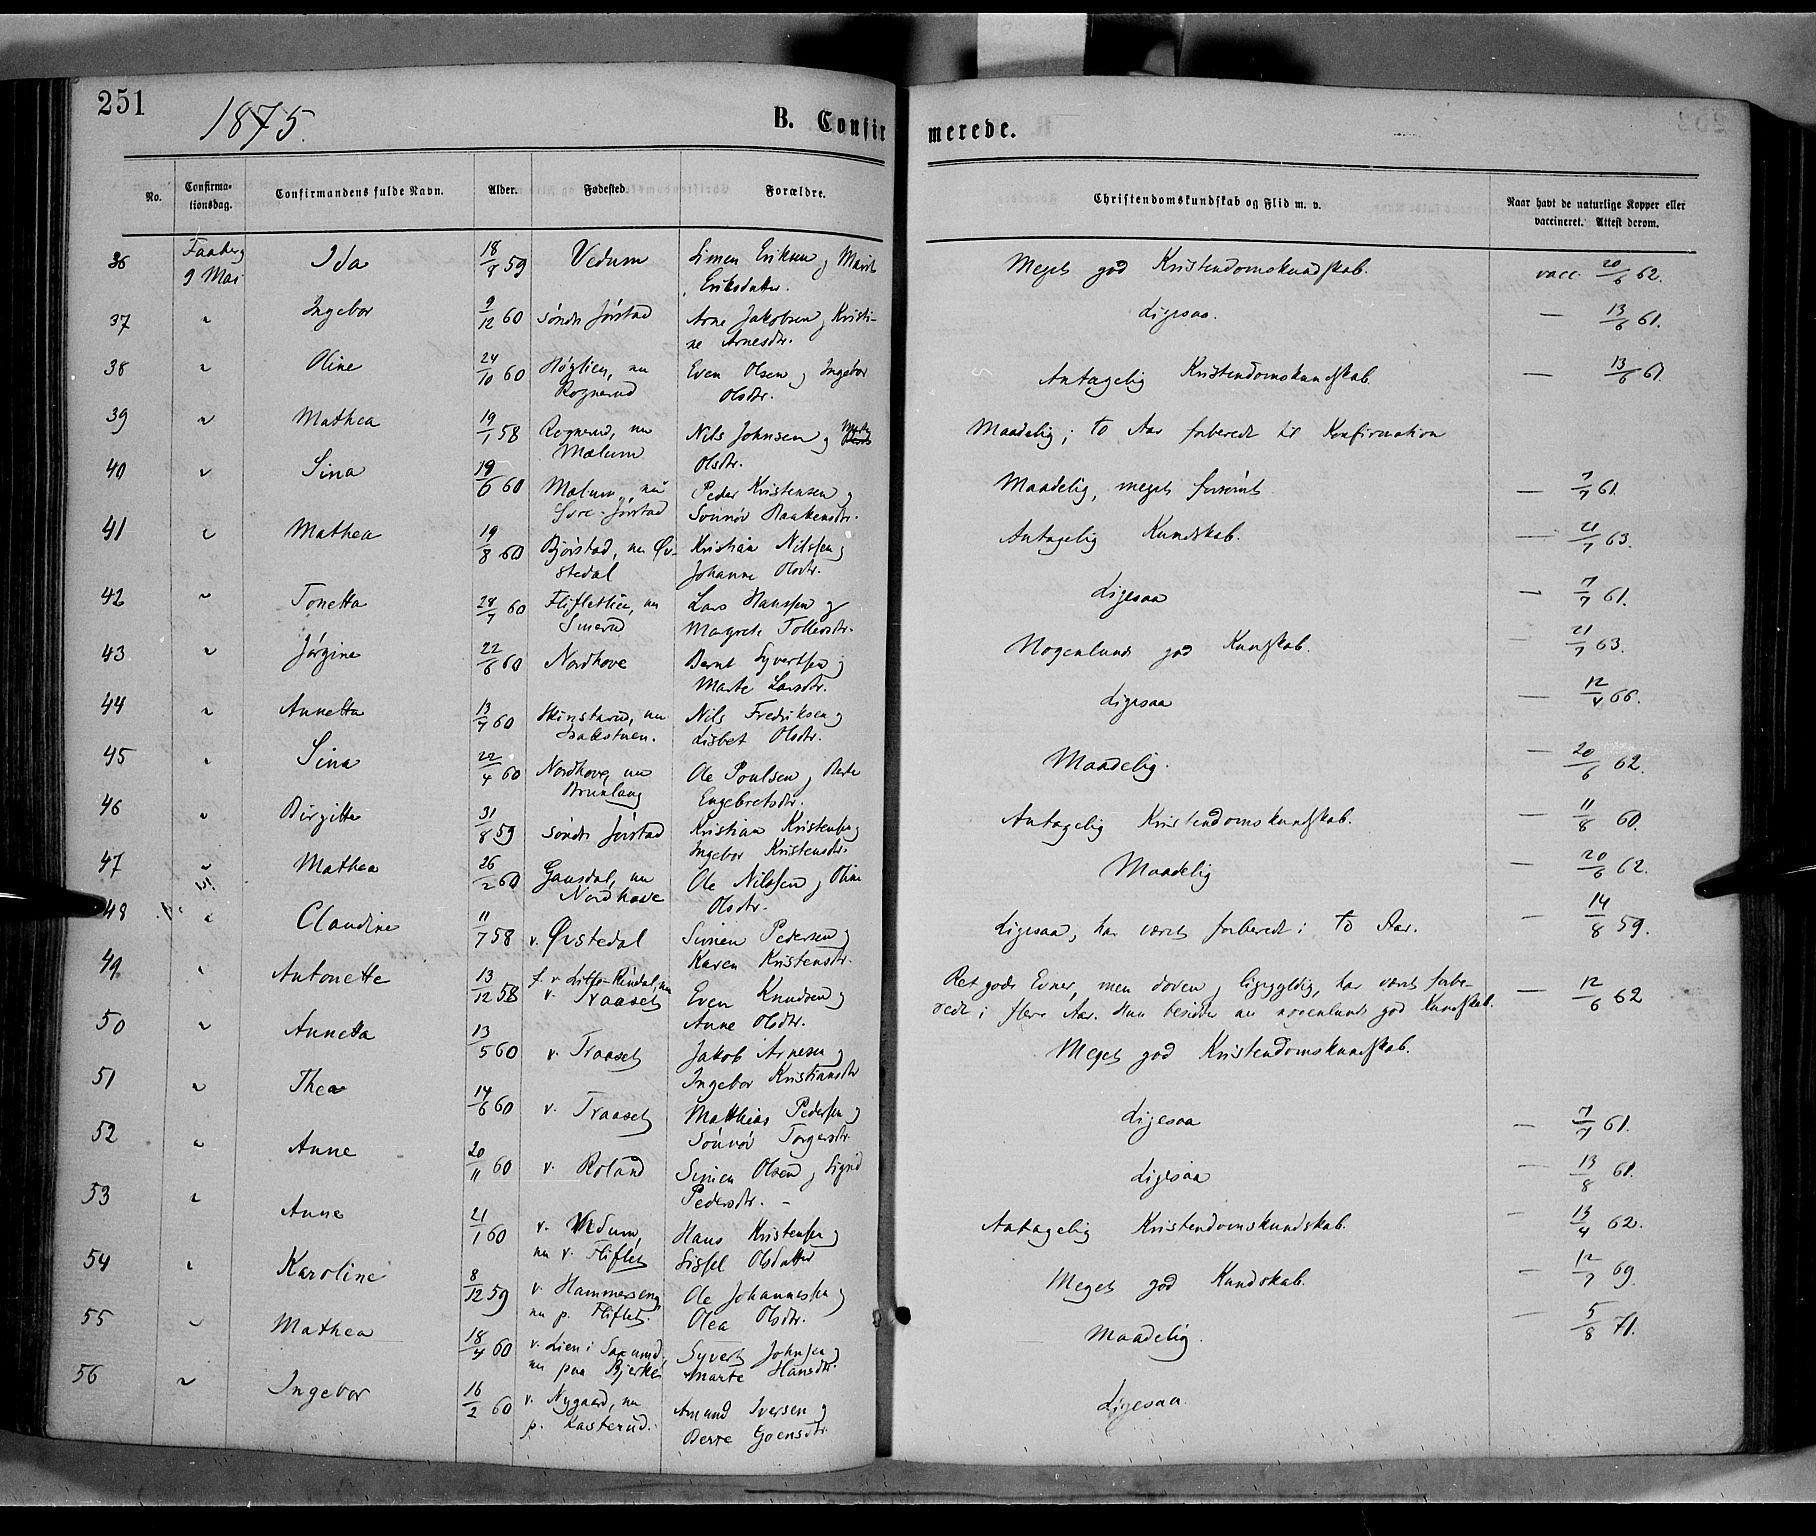 251
1875.
B. Confirmerede.
No. Confirmationsdag. Confirmandens fulde Navn. Alder. Fødested. Forældre. Christendomskundskab og Flid m. v. Naar havt de naturlige Kopper eller vaccineret. Attest derom.
36 Faaberg 9 Mai Ida 18/8 59 Vedum Simen Eriksen og Marit Eriksdatter. Meget god Kristendomskundskab. vacc. 20/6 62.
37 " Ingebor 9/12 60 søndr Jørstad Arne Jakobsen og Kristine Arnesdtr. Ligesaa. — 13/6 61.
38 " Oline 24/10 60 Høglien, nu Rognerud Even Olsen og Ingebor Olsdtr. Antagelig Kristendomskundskab. — 13/6 61.
39 " Mathea 19/1 58 Rognerud, nu Mælum Nils Johnsen og Olsdtr. Maadelig; to Aar forberedt til Konfirmation
40 " Sina 19/6 60 Mælum, nu Jørstad Peder Kristensen og Sønnøv Haakensdtr. Maadelig, meget forsømt. — 7/7 61.
41 " Mathea 19/8 60 Bjørstad, nu Øvstedal Kristian Nilssen og Johanne Olsdtr. Antagelig Kundskab. — 21/7 63.
42 " Tonetta 28/7 60 Fliflethien, nu Smerud Lars Hanssen og Margrete Tollevsdtr. Ligesaa — 7/7 61.
43 " Jørgine 22/6 60 Nordhove Bernt Syvertsen og Marte Larsdtr. Nogenlunde god Kunskab. — 21/7 63.
44 " Annetta 13/7 60 Skinstarud, nu Isakstuen. Nils Fredriksen og Lisbet Olsdtr. Ligesaa — 12/4 66.
45 " Sina 22/4 60 Nordhove, nu Brunlaug Ole Poulsen og Berte Engebretsdtr. Maadelig. — 20/6 62.
46 " Birgitte 31/8 59 søndr Jørstad Kristian Kristensen og Ingebor Kristensdtr. Antagelig Kristendomskundskab. — 11/8 60.
47 " Mathea 26/2 60 Gausdal, nu Nordhove Ole Nilssen og Oline Olsdtr. Maadelig — 20/6 62.
48 " Claudine 11/7 58 v. Øvstedal Simen Pedersen og Karen Kristensdtr. Ligesaa, har været forberedt i to Aar. — 14/8 59.
49 " Antonette 13/12 58 f. v. Lille-Rindal, nu v. Traaset Even Knudsen og Anne Olsdtr. Ret gode Evner, men doven og ligegyldig, har været forberedt i flere Aar. Hun besidder nu nogenlunde god Kundskab. — 12/6 62
50 " Annetta 13/5 60 v. Traaset Jakob Arnesen og Ingebor Kristiansdtr Meget god Kristendomskundskab.
51 " Thea 14/6 60 v. Traaset Matthias Pedersen og Sønnøv Torgersdtr. Ligesaa — 7/7 61.
52 " Anne 20/11 60 v. Roland Simen Olsen og Sigrid Pedersdtr. — Ligesaa — 13/8 61.
53 " Anne 21/1 60 v. Vedum, nu v. Fliflet Hans Kristensen og Sissel Olsdatter Antagelig Kristendomskundskab. — 13/4 62.
54 " Karoline 8/12 59 v. Hammerseng nu p. Fliflet. Ole Johannessen og Olea Olsdtr. Meget god Kundskab. — 12/7 69.
55 " Mathea 18/4 60 v. Lien i Saxumd. nu paa Bjerke Syvert Johnsen og Marte Hansdtr. Maadelig. — 5/8 71.
56 " Ingebor 16/2 60 v. Nygaard, nu p. Kasterud. Amund Iversen og Berte Goensdtr. Ligesaa.